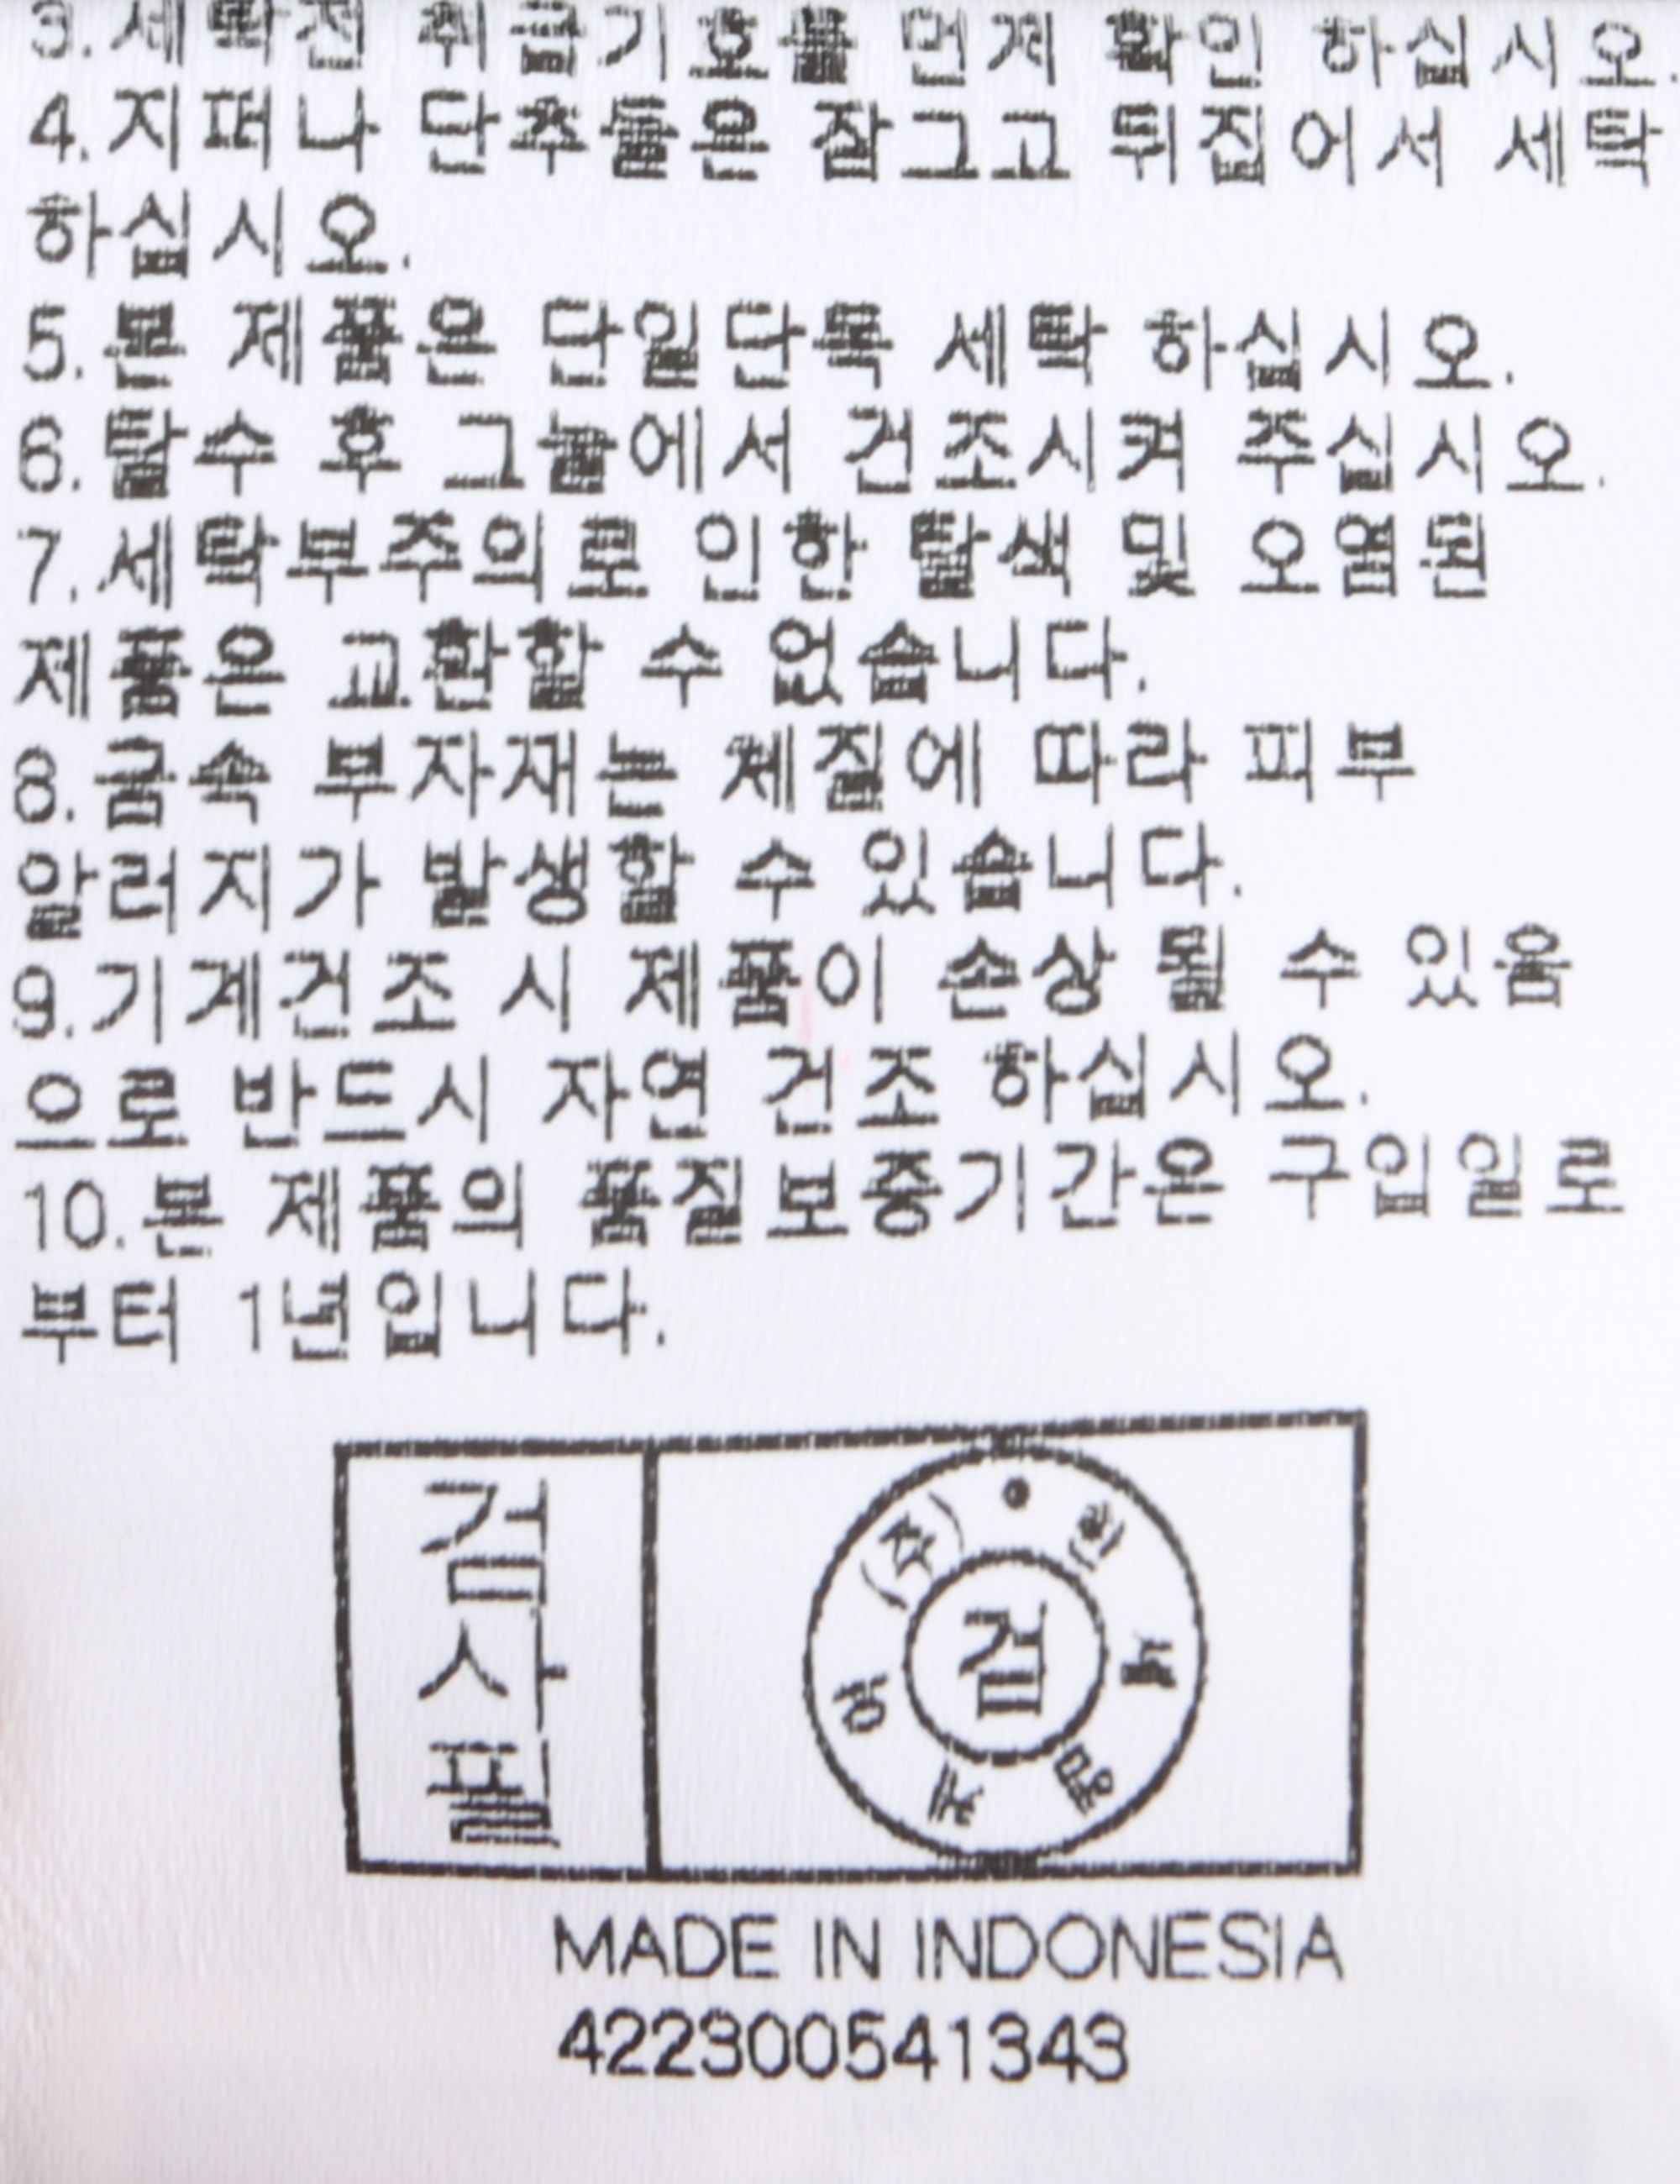 3.세탁전 취급기호를 먼저 확인 하십시오.
4.지퍼나 단추들은 잠그고 뒤집어서 세탁
하십시오.
5.본 제품은 단일단독 세탁 하십시오.
6.탈수 후 그늘에서 건조시켜 주십시오.
7.세탁부주의로 인한 탈색 및 오염된
제품은 교환할 수 없습니다.
8.금속 부자재는 체질에 따라 피부
알러지가 발생할 수 있습니다.
9.기계건조 시 제품이 손상 될 수 있음
으로 반드시 자연 건조 하십시오.
10.본 제품의 품질보증기간은 구입일로
부터 1년입니다.
검사필
(주)
검
MADE IN INDONESIA
422300541343